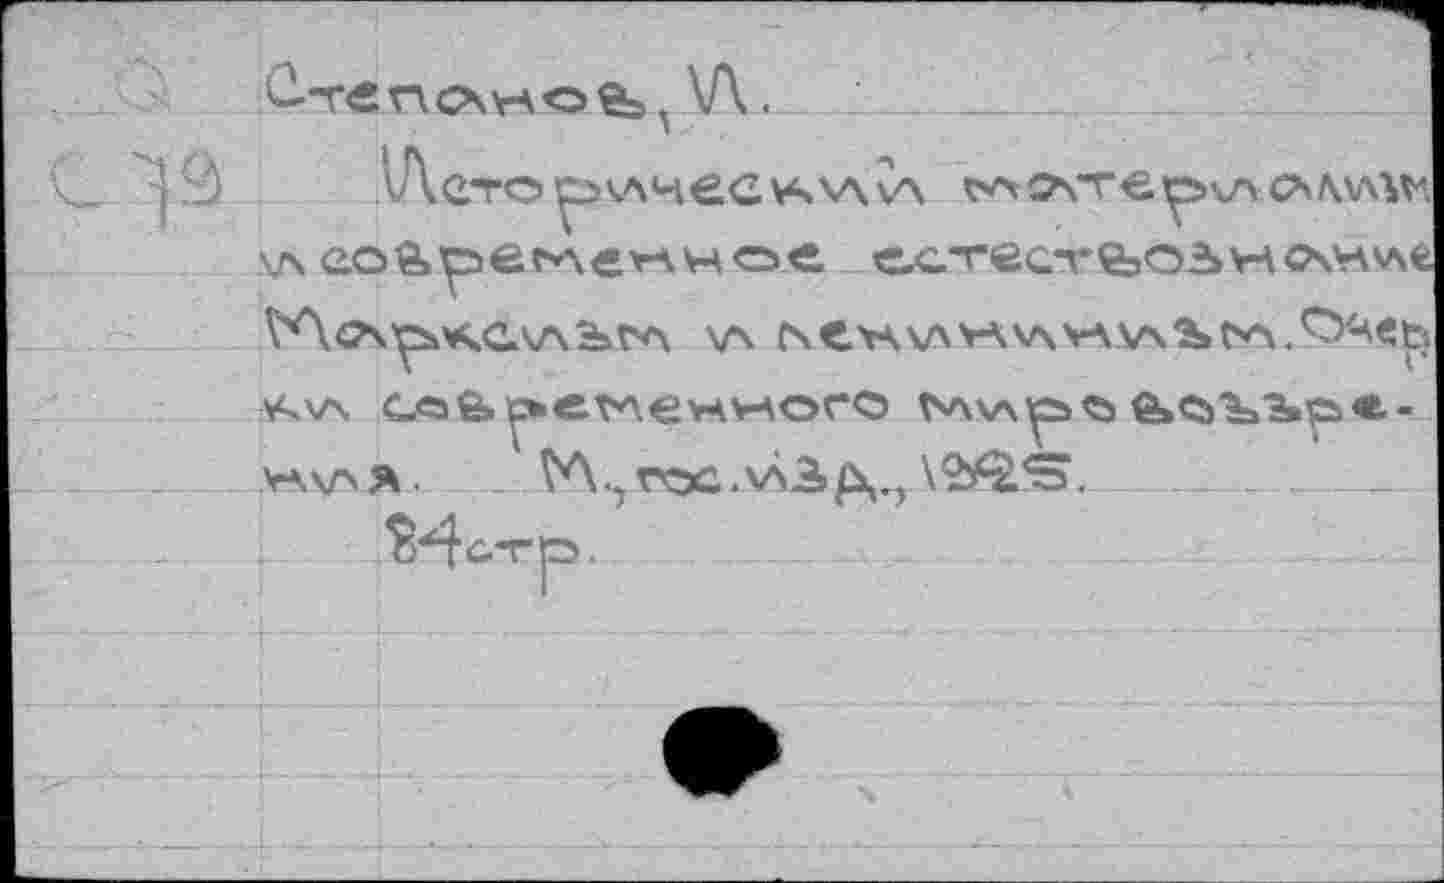 Степанов, И.
С 79 Исторический материализм
и современное естествознание
Марксизм и ленинизм. Очер
ки современного мировоззре-
ния. М., гос. изд., 1925.
84 стр.